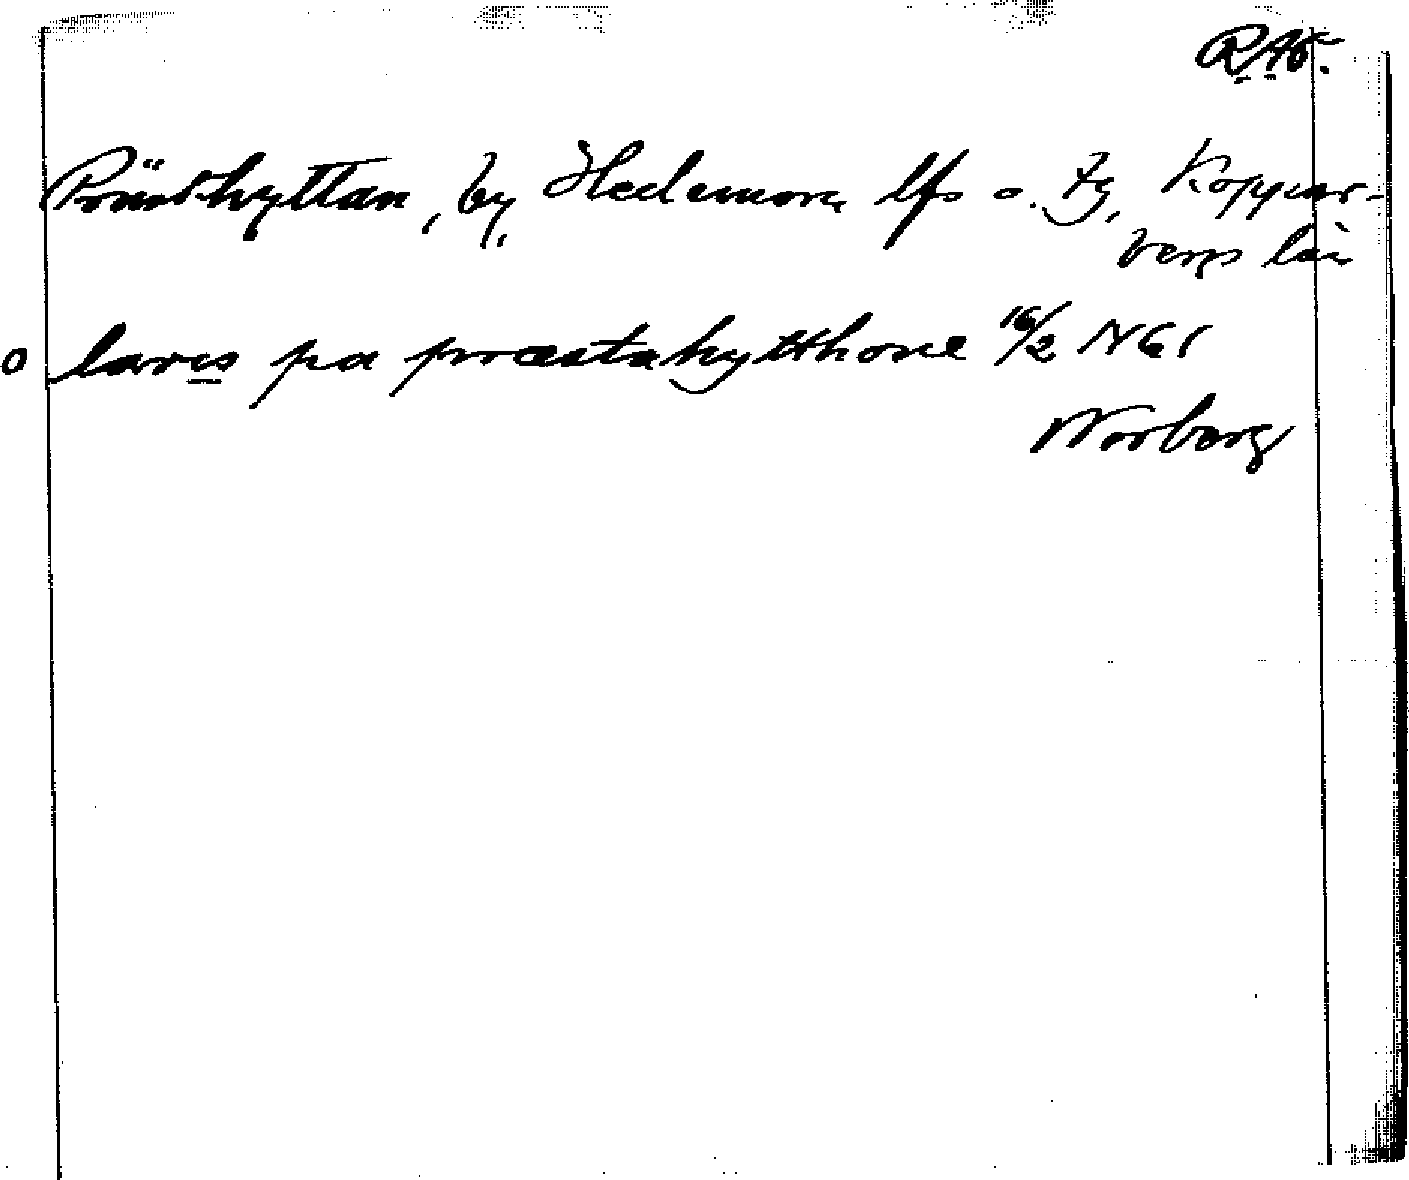 RAö.
Prästhyttan, by, Hedemora lfs o. Tg, Koppar-
bergs län
o lares pa præstahytthone 16/2 1461
Norberg